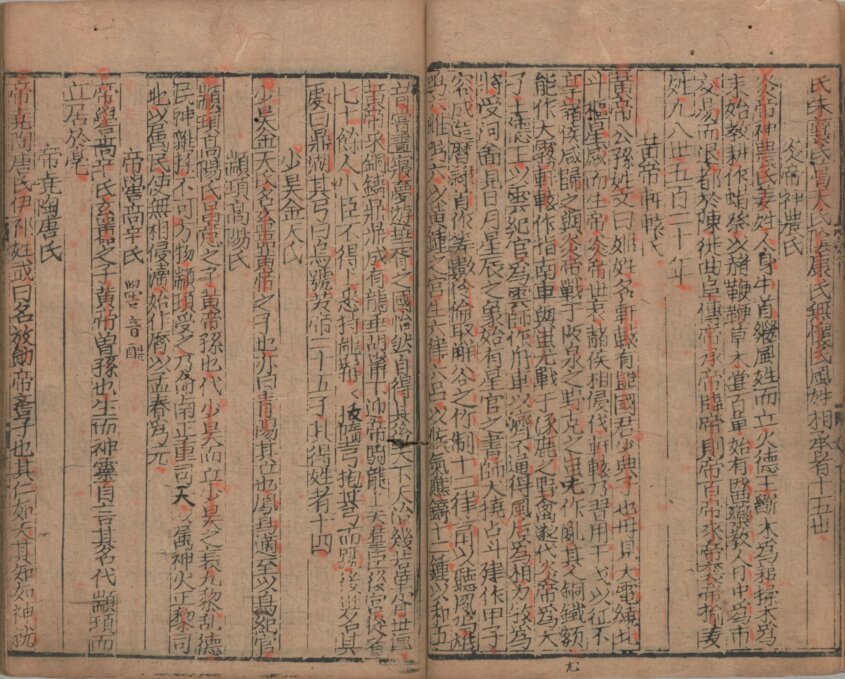 氏朱襄氏葛天氏陰康氏無懷氏風姓相承者十五世
炎帝神農氏
炎帝神農氏姜姓人身牛首繼風姓而立火德王斲木為耜揉木為
耒始教耕作蜡祭以赭鞭鞭草木嘗百草始有醫藥教人日中為市
交易而退都於陳徙曲阜傳帝承帝臨帝則帝百帝來帝襄帝榆
姓凡八世五百二十年
黃帝軒轅氏
黃帝公孫姓又曰姬姓名軒轅有熊國君少典子也母見大電繞北
斗樞星感而生帝炎帝世衰諸侯相侵伐軒轅乃習用干戈以征不
享諸侯咸歸之與炎帝戰于阪泉之野克之蚩尤作亂其人銅鐵額
能作大霧軒轅作指南車與蚩尤戰于涿鹿之野禽之遂代炎帝為天
子土德王以雲紀官為雲師作舟車以濟不通得風后為相力牧為
將受河圖見日月星辰之象始有星官之書師大撓占斗建作甲子
容成造曆隸首作算數伶倫取嶰谷之竹制十二律筩以聽鳳鳴雄
鳴六雌鳴六以黃鐘之宮生六律六呂以候氣應鑄十二鐘以和五
音嘗晝寢夢遊華胥之國怡然自得其後天下大治幾若華胥世傳
黃帝采銅鑄鼎鼎成有龍垂胡髯下迎帝騎龍上天羣臣後宮從者
七十餘人小臣不得上悉持龍髯髯拔墮弓抱其弓而號後世名其
處曰鼎湖其弓曰烏號黃帝二十五子其得姓者十四
少昊金天氏
少昊金天氏名玄囂黃帝之子也亦曰青陽其立也鳳鳥適至以鳥紀官
顓頊高陽氏
顓頊高陽氏昌意之子黃帝孫也代少昊而立少昊之衰九黎亂德
民神雜揉不可方物顓頊受之乃命南正重司天以屬神火正黎司
地以屬民使無相侵瀆始作曆以孟春為元
帝嚳高辛氏 嚳音酷
帝嚳高辛氏玄囂之子黃帝曾孫也生而神靈自言其名代顓頊而
立居於亳
帝堯陶唐氏
帝堯陶唐氏伊祁姓或曰名放勛帝嚳子也其仁如天其知如神就
九